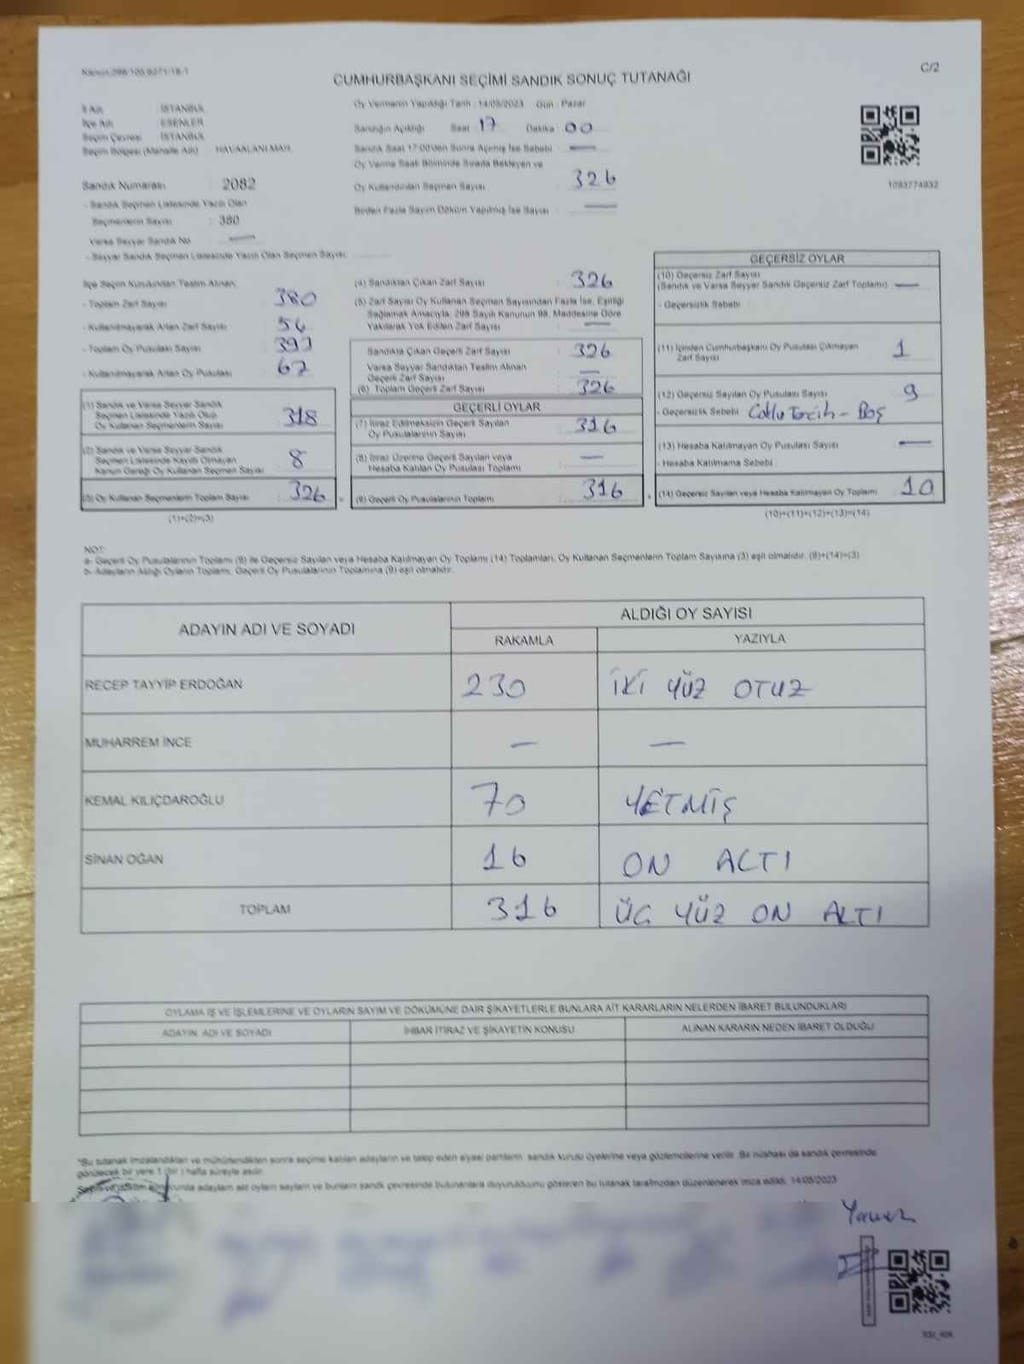 C/2
CUMHURBAŞKANI SEÇİMİ SANDIK SONUÇ TUTANAĞI
İl Adı : İSTANBUL
İlçe Adı : ESENLER
Seçim Çevresi : İSTANBUL
Seçim Bölgesi (Mahalle Adı) : HAVAALANI MAH.
Oy Vermenin Yapıldığı Tarih : 14/05/2023 Gün : Pazar
Sandığın Açıldığı Saat 17 Dakika : 00
Sandık Saat 17:00'den Sonra Açılmış İse Sebebi —
Oy Verme Saati Bitiminde Sırada Bekleyen ve
Oy Kullandırılan Seçmen Sayısı 326
Birden Fazla Sayım Döküm Yapılmış İse Sayısı —
1093774932
Sandık Numarası : 2082
- Sandık Seçmen Listesinde Yazılı Olan
Seçmenlerin Sayısı : 380
Varsa Seyyar Sandık No —
- Seyyar Sandık Seçmen Listesinde Yazılı Olan Seçmen Sayısı:
İlçe Seçim Kurulundan Teslim Alınan;
- Toplam Zarf Sayısı 380
- Kullanılmayarak Artan Zarf Sayısı 54
- Toplam Oy Pusulası Sayısı
- Kullanılmayarak Artan Oy Pusulası 67
(1) Sandık ve Varsa Seyyar Sandık
Seçmen Listesinde Yazılı Olup
Oy Kullanan Seçmenlerin Sayısı 318
(2) Sandık ve Varsa Seyyar Sandık
Seçmen Listesinde Kayıtlı Olmayan
Kanun Gereği Oy Kullanan Seçmen Sayısı 8
(3) Oy Kullanan Seçmenlerin Toplam Sayısı 326
(1)+(2)=(3)
(4) Sandıktan Çıkan Zarf Sayısı 326
(5) Zarf Sayısı Oy Kullanan Seçmen Sayısından Fazla İse, Eşitliği
Sağlamak Amacıyla; 298 Sayılı Kanunun 98. Maddesine Göre
Yakılarak Yok Edilen Zarf Sayısı —
Sandıkta Çıkan Geçerli Zarf Sayısı 326
Varsa Seyyar Sandıktan Teslim Alınan
Geçerli Zarf Sayısı —
(6) Toplam Geçerli Zarf Sayısı 326
GEÇERLİ OYLAR
(7) İtiraz Edilmeksizin Geçerli Sayılan
Oy Pusulalarının Sayısı 316
(8) İtiraz Üzerine Geçerli Sayılan veya
Hesaba Katılan Oy Pusulası Toplamı —
(9) Geçerli Oy Pusulalarının Toplamı 316
GEÇERSİZ OYLAR
(10) Geçersiz Zarf Sayısı
(Sandık ve Varsa Seyyar Sandık Geçersiz Zarf Toplamı) —
- Geçersizlik Sebebi
(11) İçinden Cumhurbaşkanı Oy Pusulası Çıkmayan
Zarf Sayısı 1
(12) Geçersiz Sayılan Oy Pusulası Sayısı 9
- Geçersizlik Sebebi Çoklu Tercih - Boş
(13) Hesaba Katılmayan Oy Pusulası Sayısı —
- Hesaba Katılmama Sebebi
(14) Geçersiz Sayılan veya Hesaba Katılmayan Oy Toplamı 10
(10)+(11)+(12)+(13)=(14)
NOT:
a- Geçerli Oy Pusulalarının Toplamı (9) ile Geçersiz Sayılan veya Hesaba Katılmayan Oy Toplamı (14) Toplamları, Oy Kullanan Seçmenlerin Toplam Sayısına (3) eşit olmalıdır. (9)+(14)=(3)
b- Adayların Aldığı Oyların Toplamı, Geçerli Oy Pusulalarının Toplamına (9) eşit olmalıdır.
ADAYIN ADI VE SOYADI
ALDIĞI OY SAYISI
RAKAMLA YAZIYLA
RECEP TAYYİP ERDOĞAN 230 İKİ YÜZ OTUZ
MUHARREM İNCE — —
KEMAL KILIÇDAROĞLU 70 YETMİŞ
SİNAN OĞAN 16 ON ALTI
TOPLAM 316 ÜÇ YÜZ ON ALTI
OYLAMA İŞ VE İŞLEMLERİNE VE OYLARIN SAYIM VE DÖKÜMÜNE DAİR ŞİKAYETLERLE BUNLARA AİT KARARLARIN NELERDEN İBARET BULUNDUKLARI
ADAYIN ADI VE SOYADI İHBAR İTİRAZ VE ŞİKAYETİN KONUSU ALINAN KARARIN NEDEN İBARET OLDUĞU
*Bu tutanak imzalandıktan ve mühürlendikten sonra seçime katılan adayların ve talep eden siyasi partilerin, sandık kurulu üyelerine veya gözlemcilerine verilir. Bir nüshası da sandık çevresinde
görülecek bir yere 1 (bir) hafta süreyle asılır.
adayların ait oyların sayılım ve bunların sandık çevresinde bulunanlara duyurulduğunu gösteren bu tutanak tarafımızdan düzenlenerek imza edildi. 14/05/2023